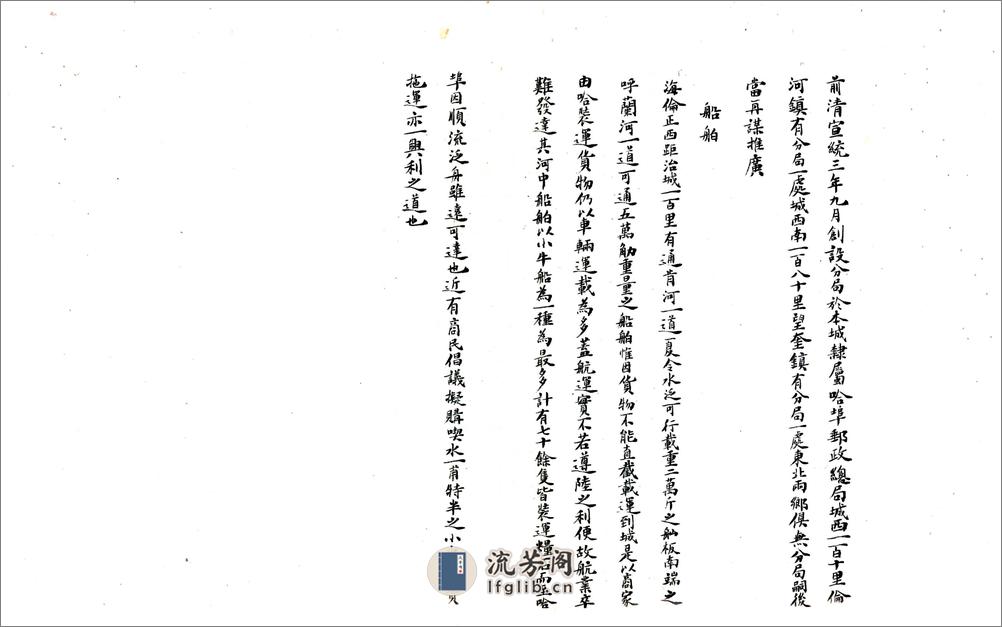 前清宣統三年九月創設分局於本城隸屬哈埠郵政總局城西一百十里倫
河鎮有分局一處城西南一百八十里望奎鎮有分局一處東北兩鄉俱無分局嗣後
當再謀推廣
船舶
海倫正西距治城一百里有通肯河一道夏令水泛可行載重二萬斤之舢板南端之
呼蘭河一道可通五萬觔重量之船舶惟因貨物不能直截載運到城是以商家
由哈裝運貨物仍以車輛運載為多蓋航運實不若遵陸之利便故航業卒
難發達其河中船舶以小牛船為一種為最多計有七十餘隻皆裝運糧石而至哈
埠因順流泛舟雖遠可達也近有商民倡議擬購喫水一甫特半之小
拖運亦一興利之道也
流芳阁
lfglib.cn